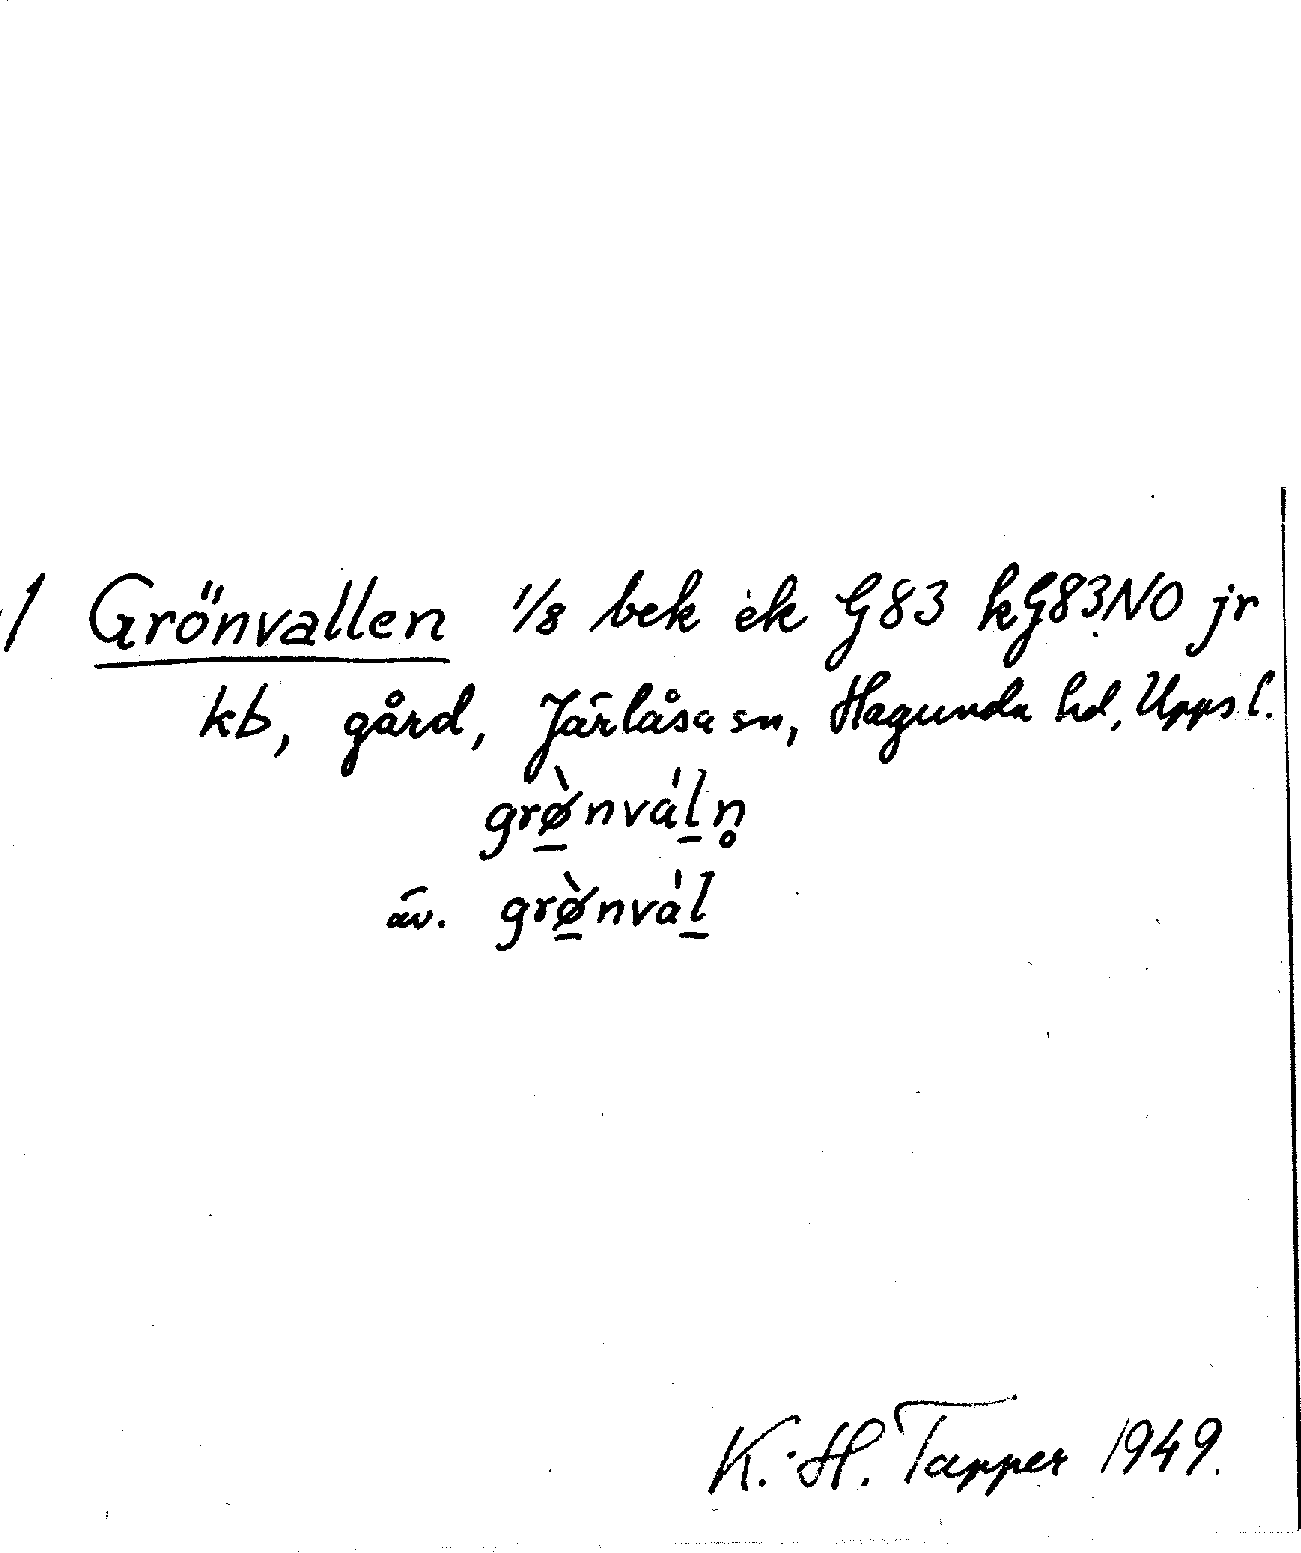 / Grönvallen 1/8 bek ek G83 kG83NO jr
kb, gård, Järlåsa sn, Hagunda hd, Upps l.
grø̱̀nvá̍ḻn̥
äv. grø̱̀nvá̍ḻ
K.-H. Tapper 1949.